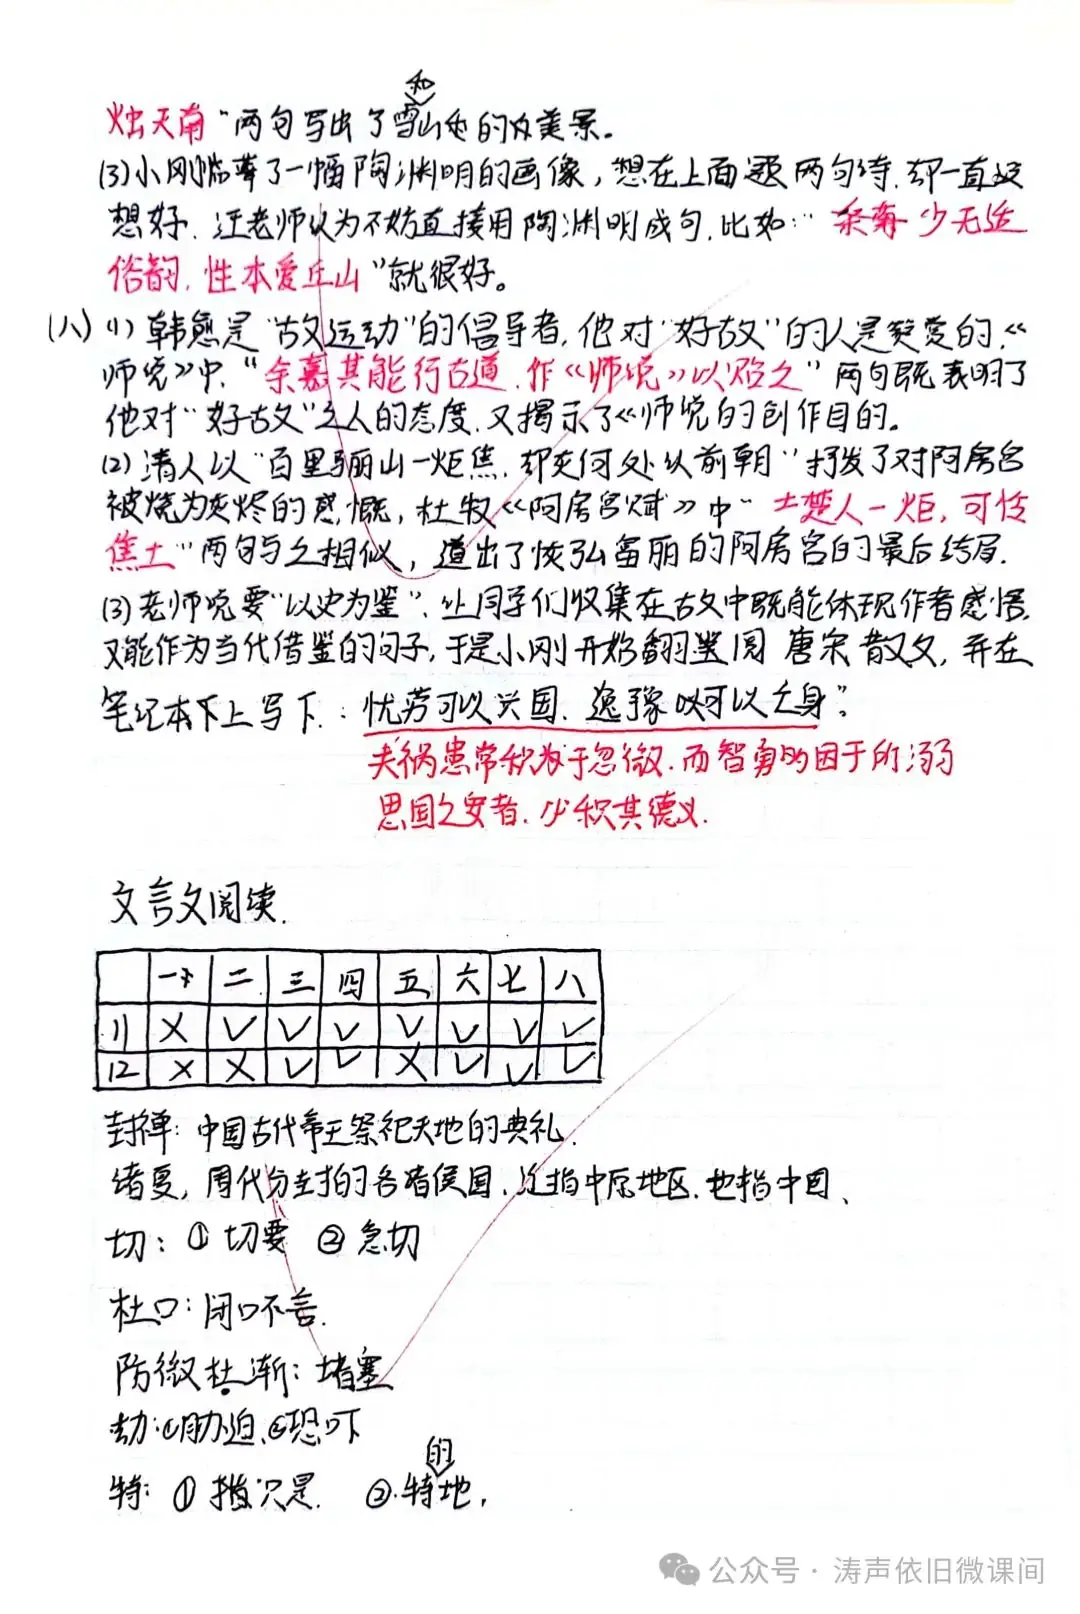 和
烛天南”两句写出了雪山的美景。
(3)小刚临摹了一幅陶渊明的画像，想在上面题两句诗，却一直没
想好，汪老师认为不妨直接用陶渊明成句，比如：“少无适
俗韵，性本爱丘山”就很好。
(八) (1) 韩愈是“古文运动”的倡导者，他对“好古文”的人是赞赏的，《
师说》中，“余嘉其能行古道，作《师说》以贻之”两句既表明了
他对“好古文”之人的态度，又揭示了《师说的创作目的。
(2) 清人以“百里骊山一炬焦，却来何处认前朝”抒发了对阿房宫
被烧为灰烬的感慨，杜牧《阿房宫赋》中“楚人一炬，可怜
焦土”两句与之相似，道出了恢弘富丽的阿房宫的最后结局.
(3) 老师说要“以史为鉴”，让同学们收集在古文中既能体现作者感悟，
又能作为当代借鉴的句子，于是小刚开始翻览阅唐宋散文，并在
笔记本下上写下：忧劳可以兴国，逸豫可以亡身”。
夫祸患常积于忽微，而智勇多困于所溺
思国之安者，必积其德义.
文言文阅读.
一 二 三 四 五 六 七 八
11 × ✓ ✓ ✓ ✓ ✓ ✓ ✓
12 × × ✓ ✓ × ✓ ✓ ✓
封禅：中国古代帝王祭祀天地的典礼.
诸夏，周代分封的各诸侯国，泛指中原地区，也指中国、
切：① 切要 ② 急切
杜口：闭口不言.
防微杜渐：堵塞
劫：①胁迫、②恐吓
的
特：① 指只是. ② 特地，
公众号 · 涛声依旧微课间